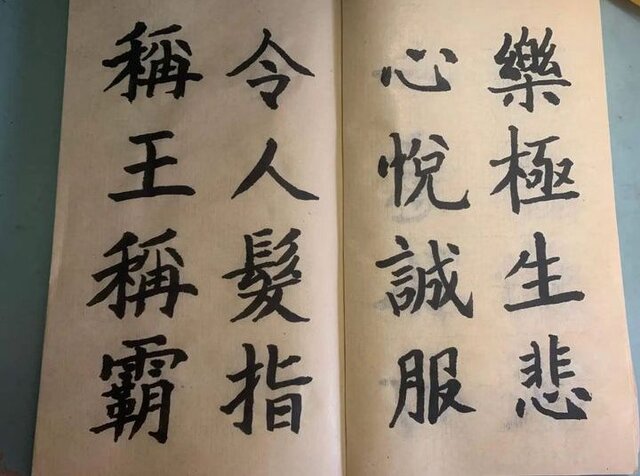 樂極生悲
心悅誠服
令人髮指
稱王稱霸